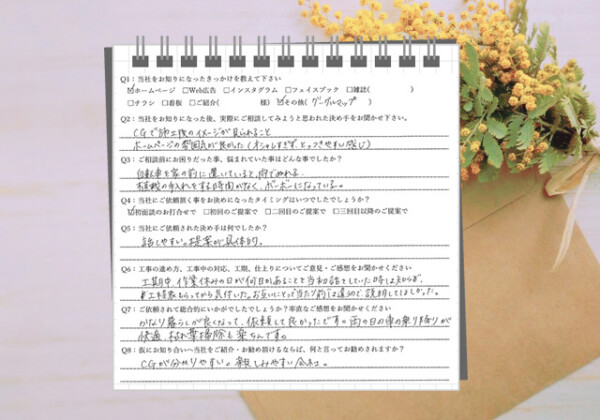 Q1：当社をお知りになったきっかけを教えて下さい
☑ホームページ □Web広告 □インスタグラム □フェイスブック □雑誌( )
□チラシ □看板 □ご紹介( 様) ☑その他( グーグルマップ )
Q2：当社をお知りになった後、実際にご相談してみようと思われた決め手をお聞かせ下さい。
CGで施工後のイメージが見られること
ホームページの雰囲気が良かった(オシャレすぎず、とっつきやすい感じ)
Q3：ご相談前にお困りだった事、悩まれていた事はどんな事でしたか？
自転車を家の前に置いていると雨でぬれる。
植栽の手入れをする時間がなく、ボーボーになっている。
Q4：当社にご依頼頂く事をお決めになったタイミングはいつでしたでしょうか？
☑初面談のお打合せで □初回のご提案で □二回目のご提案で □三回目以降のご提案で
Q5：当社にご依頼された決め手は何でしたか？
話しやすい。提案が具体的。
Q6：工事の進め方、工事中の対応、工期、仕上りについてご意見・ご感想をお聞かせください
工期中、作業休みの日が何日かあることを当初話をしていた時は知らず、
工程表もらってから気付いた。お互いにとって当たり前は違うので、説明してほしかった。
Q7：ご依頼されて総合的にいかがでしたでしょうか？率直なご感想をお聞かせください
かなり暮らしが良くなって、依頼して良かったです。雨の日の車の乗り降りが
快適、枯れ葉掃除も楽ちんです。
Q8：仮にお知り合いへ当社をご紹介・お勧め頂けるならば、何と言ってお勧めされますか？
CGが分かりやすい。親しみやすい会社。